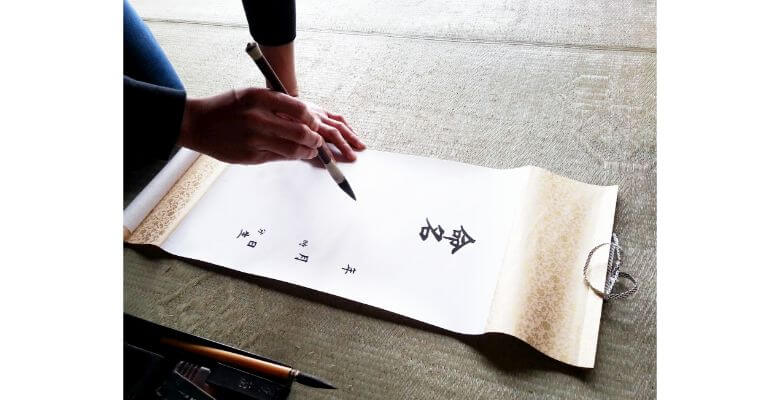 命名
年 月 日 生